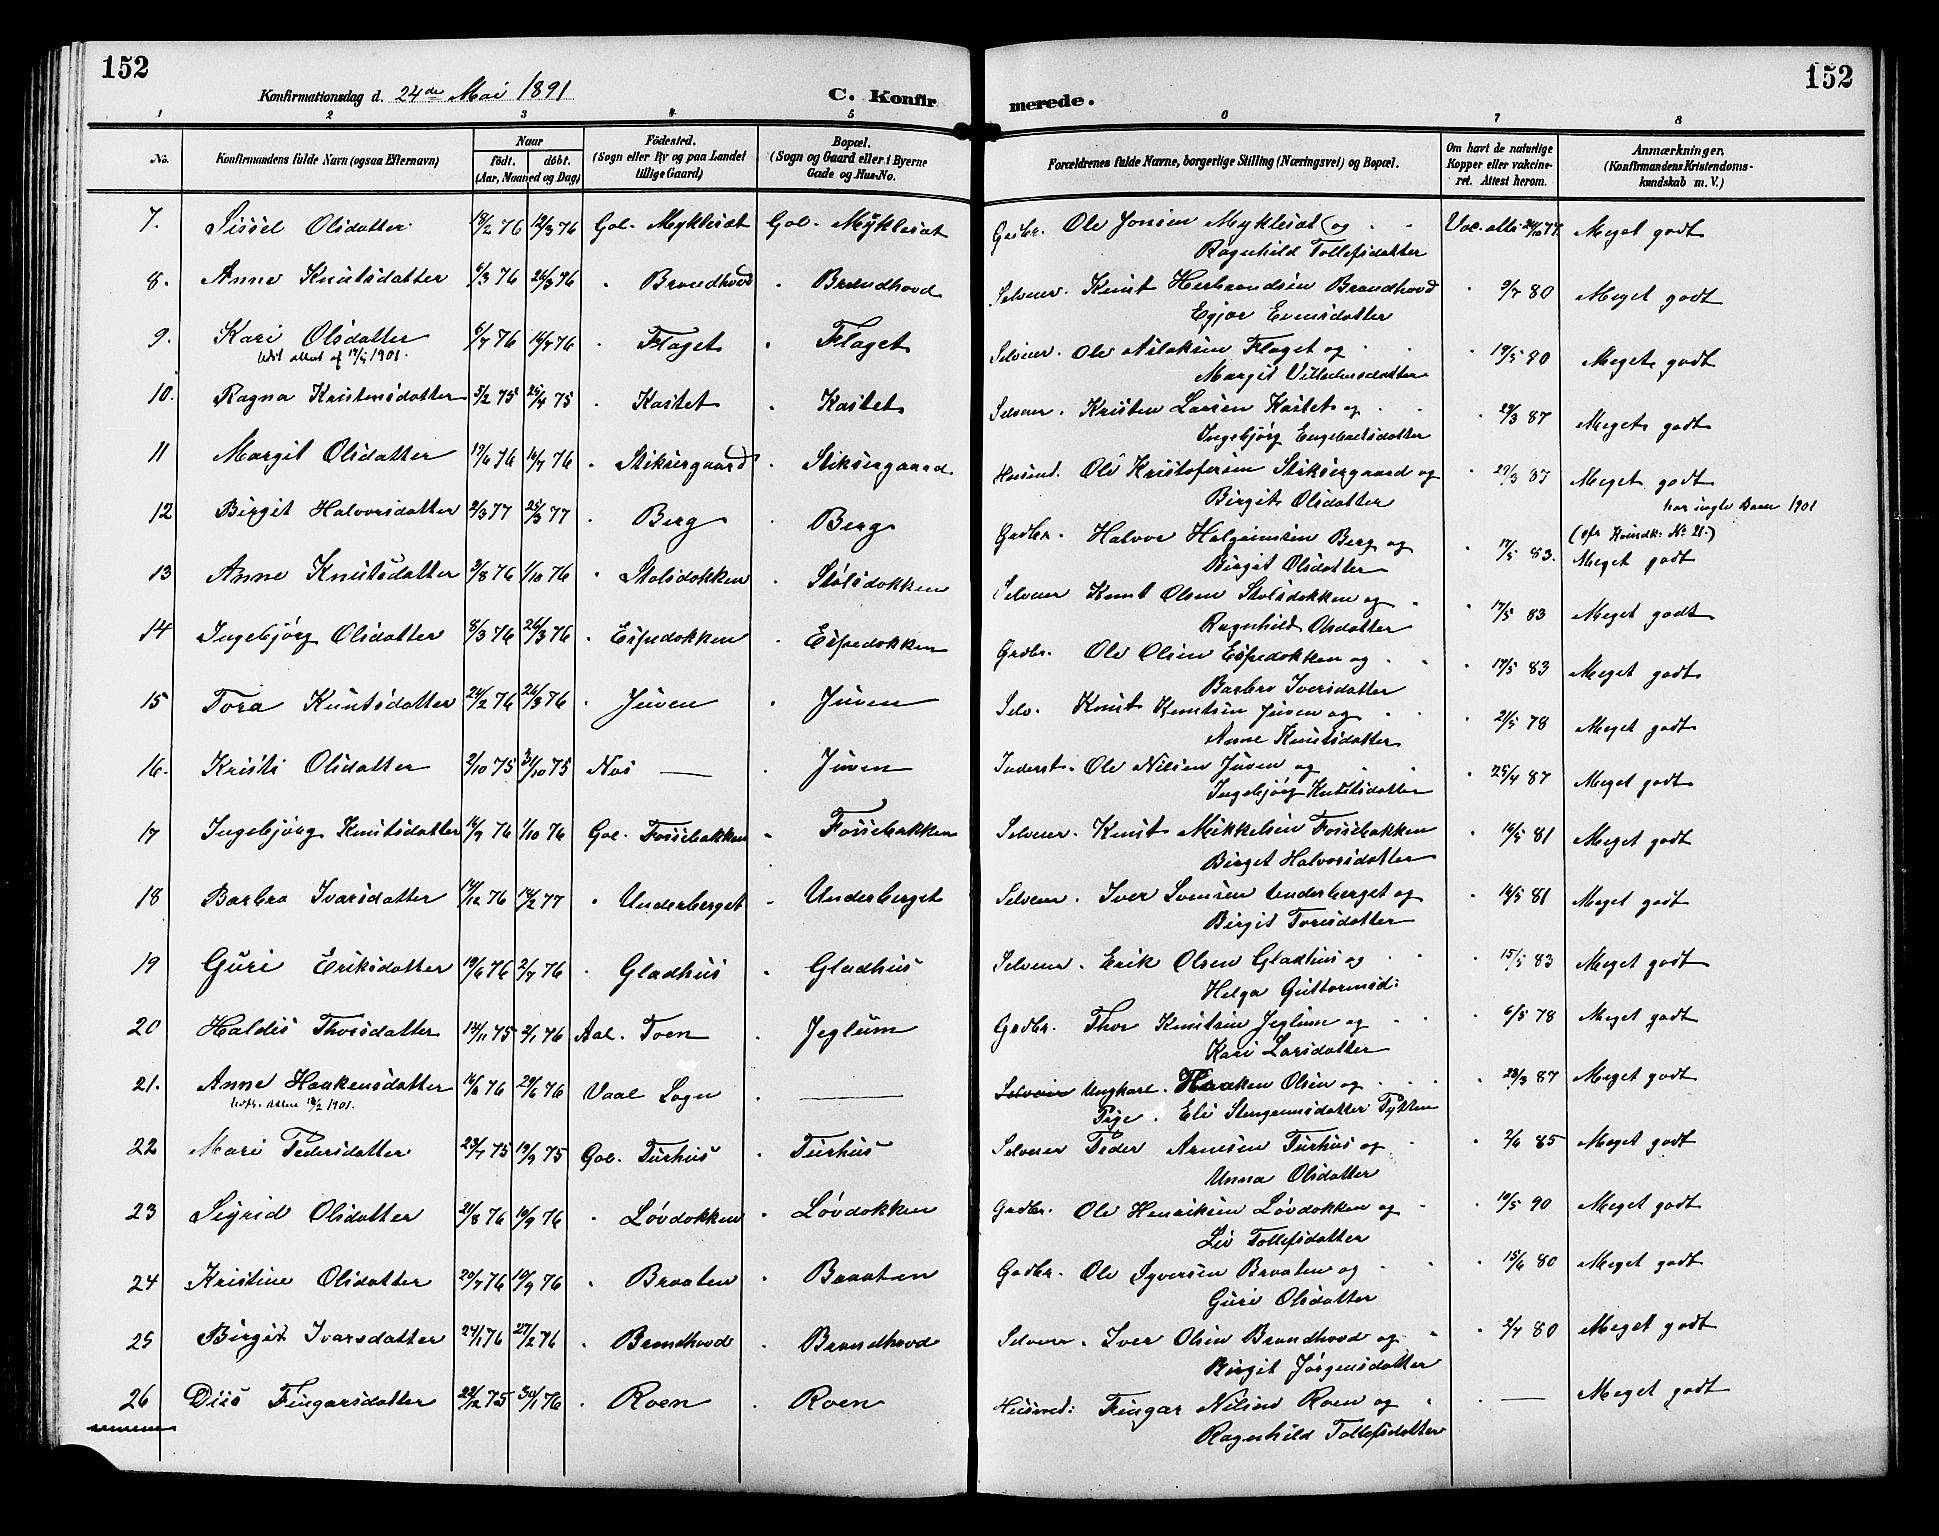 152
Konfirmationsdag d. 24de Mai 1891
C. Konfirmerede.
152
1 2 3 4 5 6 7 8
No. Konfirmandens fulde Navn (ogsaa Efternavn) Naar født. døbt. (Aar, Maaned og Dag) Fødested. (Sogn eller By og paa Landet tillige Gaard) Bopæl. (Sogn og Gaard eller i Byerne Gade og Hus-No. Forældrenes fulde Navne, borgerlige Stilling (Næringsvei) og Bopæl. Om havt de naturlige Kopper eller vakcineret. Attest herom. Anmærkninger. (Konfirmandens Kristendomskundskab m. V.)
7. Sissel Olsdatter 18/2 76 12/3 76 Gol. Myklesæt Gol. Myklesæt Gaбr. Ole Jonsen Myklesæt (og Vac. atts. 24/10 77 Meget godt
Ragnhild Tollefsdatter
8. Anne Knutsdatter 6/3 76 26/3 76 " Brandhovd " Brandhovd Selveier. Knut Herbrandsen Brandhovd " 9/7 80 Meget godt
Egjør Evensdatter
9. Kari Olsdatter 6/7 76 16/7 76 " Flaget " Flaget Selveier. Ole Aslaksen Flaget og " 19/5 80 Meget godt
Margit Villumsdatter
10. Ragna Kristensdatter 5/2 75 25/4 75 " Kastet " Kastet Selveier. Kristen Larsen Kastet og " 29/3 87 Meget godt
Ingebjørg Engebretsdatter
11 Margit Olsdatter 19/6 76 16/7 76 " Stiksrgaard " Stiksrgaard Husmd. Ole Kristofersen Stiksrgaard og " 29/3 87 Meget godt
Birgit Olsdatter
12 Birgit Halvorsdatter 2/3 77 25/3 77 " Berg " Berg Grdbr. Halvor Helgeimsen Berg og " 17/5 83. Meget godt
Birgit Olsdatter
13 Anne Knutsdatter 3/8 76 1/10 76 " Stolsdokken " Stølsdokken Selveier Knut Olsen Stolsdokken og " 17/5 83 Meget godt
Ragnhild Olsdatter
14 Ingebjørg Olsdatter 8/3 76 26/3 76 " Espedokken " Espedokken Grdbr. Ole Olsen Espedokken og " 17/5 83 Meget godt
Barbro Iversdatter
15 Tora Knutsdatter 24/2 76 26/3 76 " Juven " Juven Selv. Knut Knutsen Juven og " 2/5 78 Meget godt
Anne Knutsdatter
16. Kristi Olsdatter 2/10 75 31/10 75 Nes — " Juven Inderst. Ole Nilsen Juven og " 25/4 87 Meget godt
Ingebjørg Knutsdatter
17 Ingebjørg Knutsdatter 14/9 76 1/10 76 Gol. Fossebakken " Fossebakken Selveier. Knut Mikkelsen Fossebakken " 16/5 81 Meget godt
Birget Halvorsdatter
18 Barbro Ivarsdatter 17/12 76 14/2 77 " Underberget " Underberget Selveier. Iver Svensen Underberget og " 16/5 81 Meget godt
Birgit Torsdatter
19 Guri Eriksdatter 19/6 76 2/7 76 " Gladhus " Gladhus Selveier. Erik Olsen Gladhus og " 15/5 83 Meget godt
Helga Guttormsd:
20 Haldis Thorsdatter 13/11 75 2/1 76 Aal. Toen " Jeglum Grdbr. Thor Knutsen Jeglum og " 6/5 78 Meget godt
Kari Larsdatter
21. Anne Haakensdatter 14/6 76 29/6 76 Vaal Sogn " — Selveier Ungkarl. Haaken Olsen og " 23/3 87 Meget godt
Pige. Eli Steingrimsdatter Tytten
22 Mari Pedersdatter 23/7 75 19/9 75 Gol. Turhus " Turhus Selveier Peder Arnesen Turhus og " 2/6 85 Meget godt
Unna Olsdatter
23 Sigrid Olsdatter 21/8 76 10/9 76 " Løvdokken " Løvdokken Grdbr. Ole Henriksen Løvdokken og " 10/5 90 Meget godt
Liv Tollefsdatter
24 Kristine Olsdatter 20/7 76 10/9 76 " Braaten " Braaten Grdbr. Ole Syversen Braaten og " 15/6 80 Meget godt
Guri Olsdatter
25 Birgit Ivarsdatter 24/1 76 27/2 76 " Brandhovd " Brandhovd Selveier. Iver Olsen Brandhovd og " 2/7 80 Meget godt
Birgit Jørgensdatter
26 Diis Fingarsdatter 22/12 75 30/1 76 " Roen " Roen Husmd: Fingar Nilsen Roen og " — Meget godt
Ragnhild Tollefsdatter